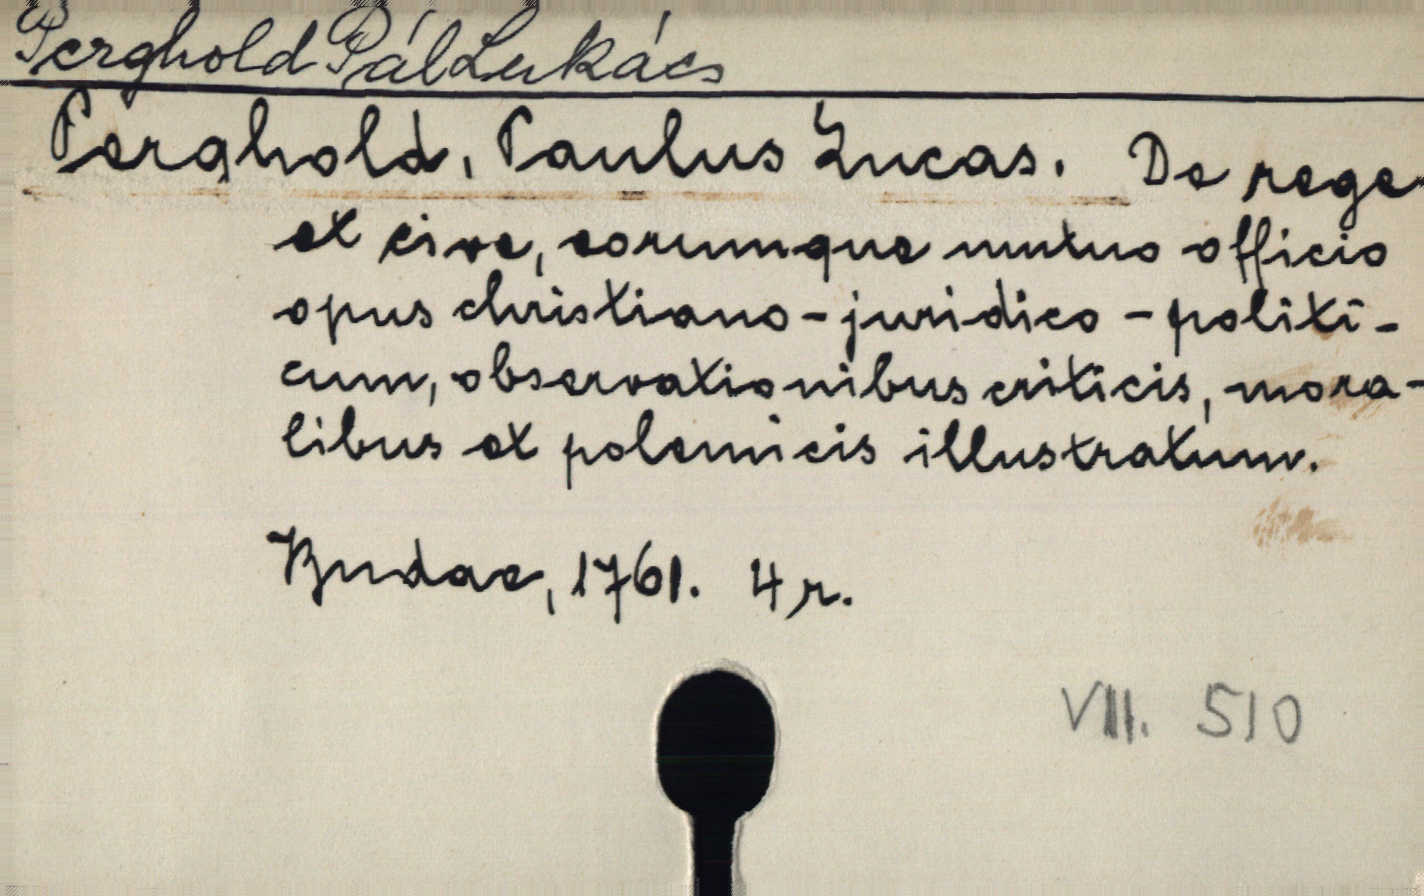 Perghold Pál Lukács
Perghold, Paulus Lucas. De rege
et cive, eorumque mutuo officio
opus christiano-juridico-politi-
cum, observationibus criticis, mora-
libus et polemicis illustratum.
Budae, 1761. 4r.
VII. 510